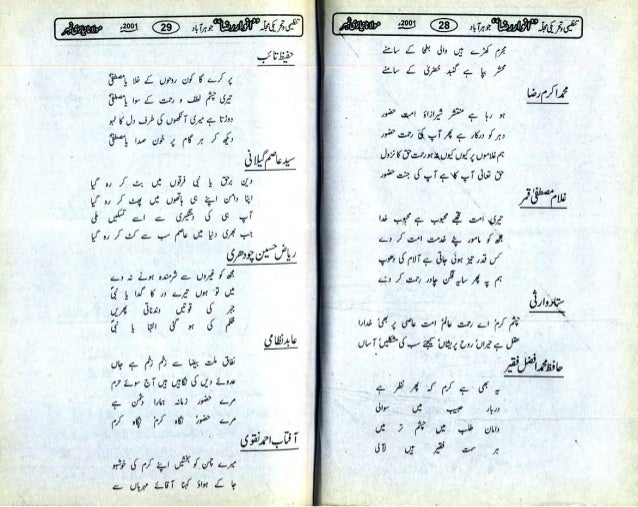 تنظیمی و تحریکی مجلہ "انوار رضا" جوہرآباد
28
2001ء
مجرم کھڑے ہیں والی بطحا کے سامنے
محشر بپا ہے گنبد خضریٰ کے سامنے
محمد اکرم رضا
ہو رہا ہے منتشر شیرازۂ امت حضور
دہر کو درکار ہے پھر آپ کی رحمت حضور
ہم غلاموں پر کیوں کیوں نہ ہو رحمت حق کا نزول
حق تعالیٰ آپ کا ہے آپ کی جنت حضور
غلام مصطفیٰ قمر
تیری امت تجھے محبوب ہے محبوب خدا
مجھ کو مامور پئے خدمت امت کر دے
کس قدر تیز ہوئی جاتی ہے آلام کی دھوپ
ہم پہ پھر سایہ فگن چادر رحمت کر دے
ستار وارثی
چشم کرم اے رحمت عالم امت عاصی پر بھی خدارا
عقل ہے حیراں روح پریشاں کیجئے سب کی مشکلیں آساں
حافظ محمد افضل فقیر
یہ بھی ہے کرم کہ پھر نظر ہے
دربار حبیب میں سوالی
دامان طلب میں چشم تر میں
ہر سمت فقیر ہیں لآلی
تنظیمی و تحریکی مجلہ "انوار رضا" جوہرآباد
29
2001ء
حفیظ تائب
پر کرے گا کون روحوں کے خلا یا مصطفیٰ
تیری چشم لطف و رحمت کے سوا یا مصطفیٰ
دوڑتا ہے میری آنکھوں کی طرف دل کا لہو
دیکھ کر ہر گام پر خون صدا یا مصطفیٰ
سید عاصم گیلانی
دین برحق یا نبی فرقوں میں بٹ کر رہ گیا
اپنا دامن اپنے ہی ہاتھوں میں پھٹ کر رہ گیا
آپ ہی کی دستگیری سے اسے تسکیں ملی
جب بھری دنیا میں عاصم سب سے کٹ کر رہ گیا
ریاض حسین چودھری
مجھ کو غیروں سے شرمندہ ہونے نہ دے
میں تو ہوں تیرے در کا گدا یا نبی
جبر کی قوتیں دندناتی پھریں
ظلم کی ہو گئی انتہا یا نبی
عابد نظامی
نفاق ملت بیضا سے زخم زخم ہے جاں
عدوئے دیں کی نگاہیں ہیں آج سوئے حرم
مرے حضور زمانہ ہمارا دشمن ہے
مرے حضور نگاہ کرم نگاہ کرم
آفتاب احمد نقوی
میرے چمن کو بخشیں اپنے کرم کی خوشبو
جا کے ہواؤ کہنا آقائے مہرباں سے